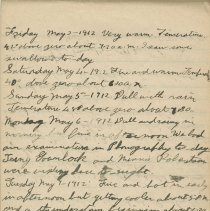 Friday May 3-1912 Very warm. Temerature
42° above zero about 7.30 a.m. I saw some
swallows to day
Saturday May 4-1912 Fine and warm Temperature
40° above zero about 6 a.m.
Sunday May 5-1912 Dull with rain
Temerature 45° above zero about 7.30.
Monday May 6-1912 Dull and rainy in
morning but fine in afternoon We had
an examination in Photography to day
Jenny and Minnie Robertson
were visiting here to night.
Tuesday May 7-1912 Fine and hot in early
in afternoon but getting cooler about 5 P.M.
and a